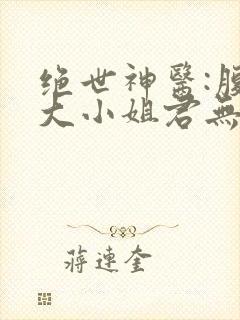 绝世神醫:腹
大小姐君無
蔣連奎